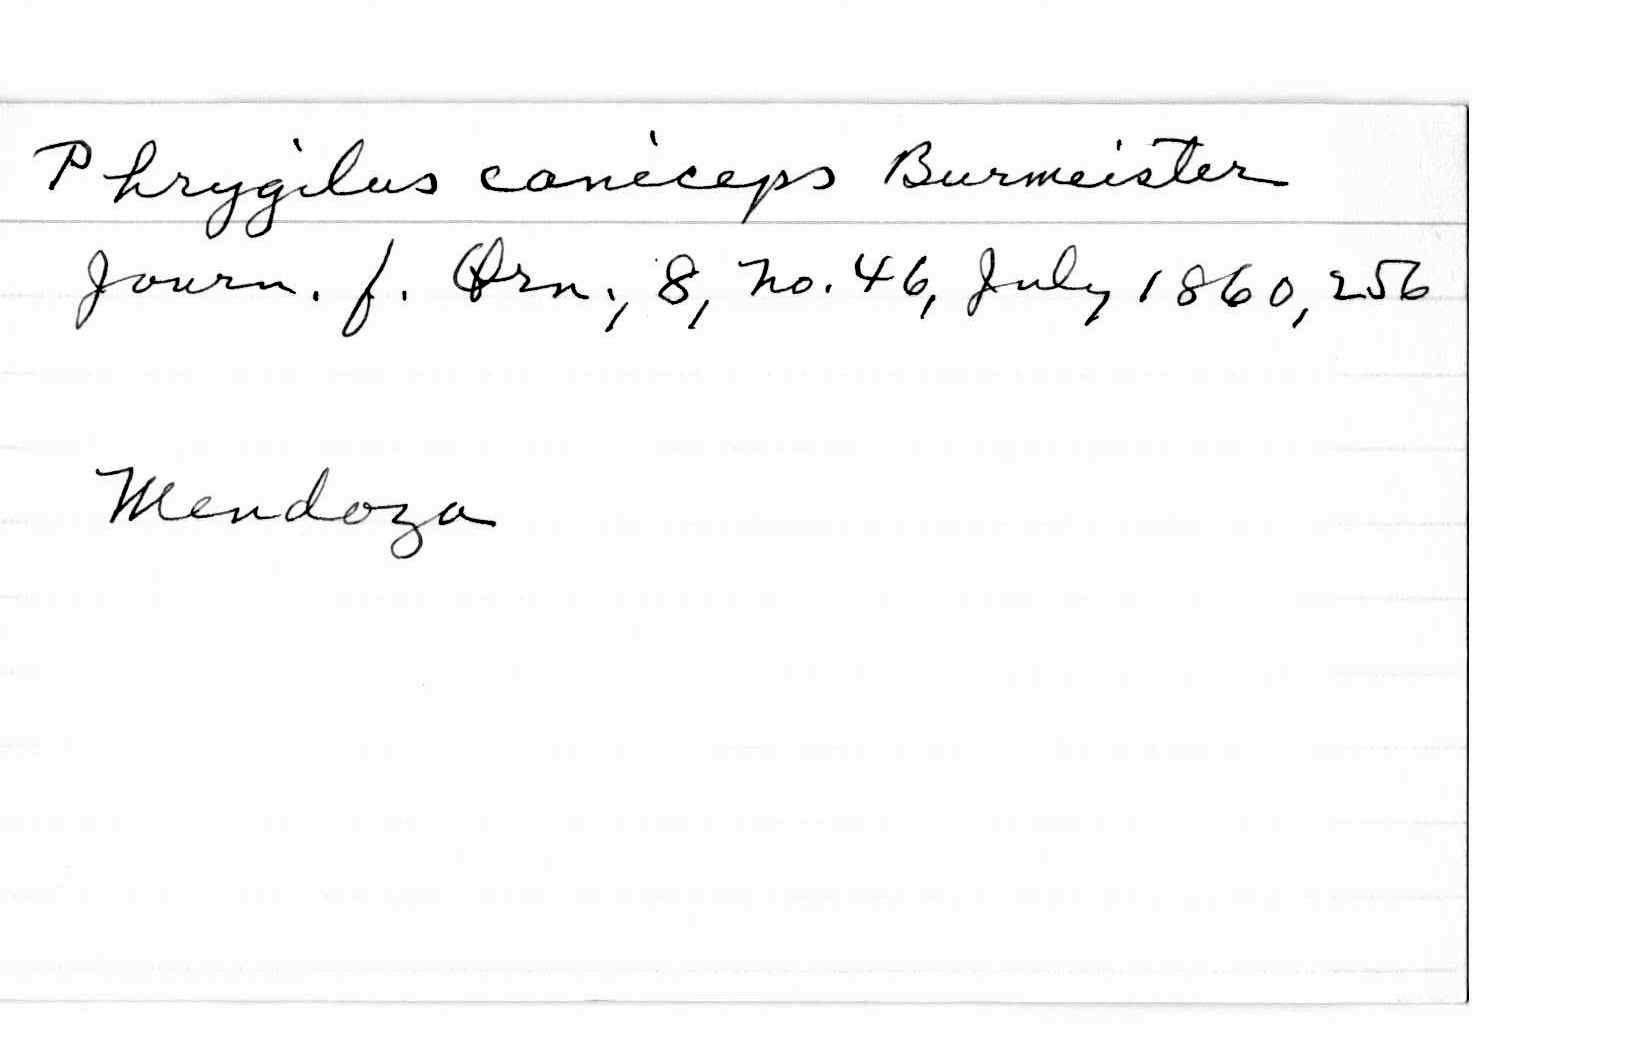 Phrygilus caniceps Burmeister
Journ. f. Orn., 8, no. 46, July 1860, 256
Mendoza